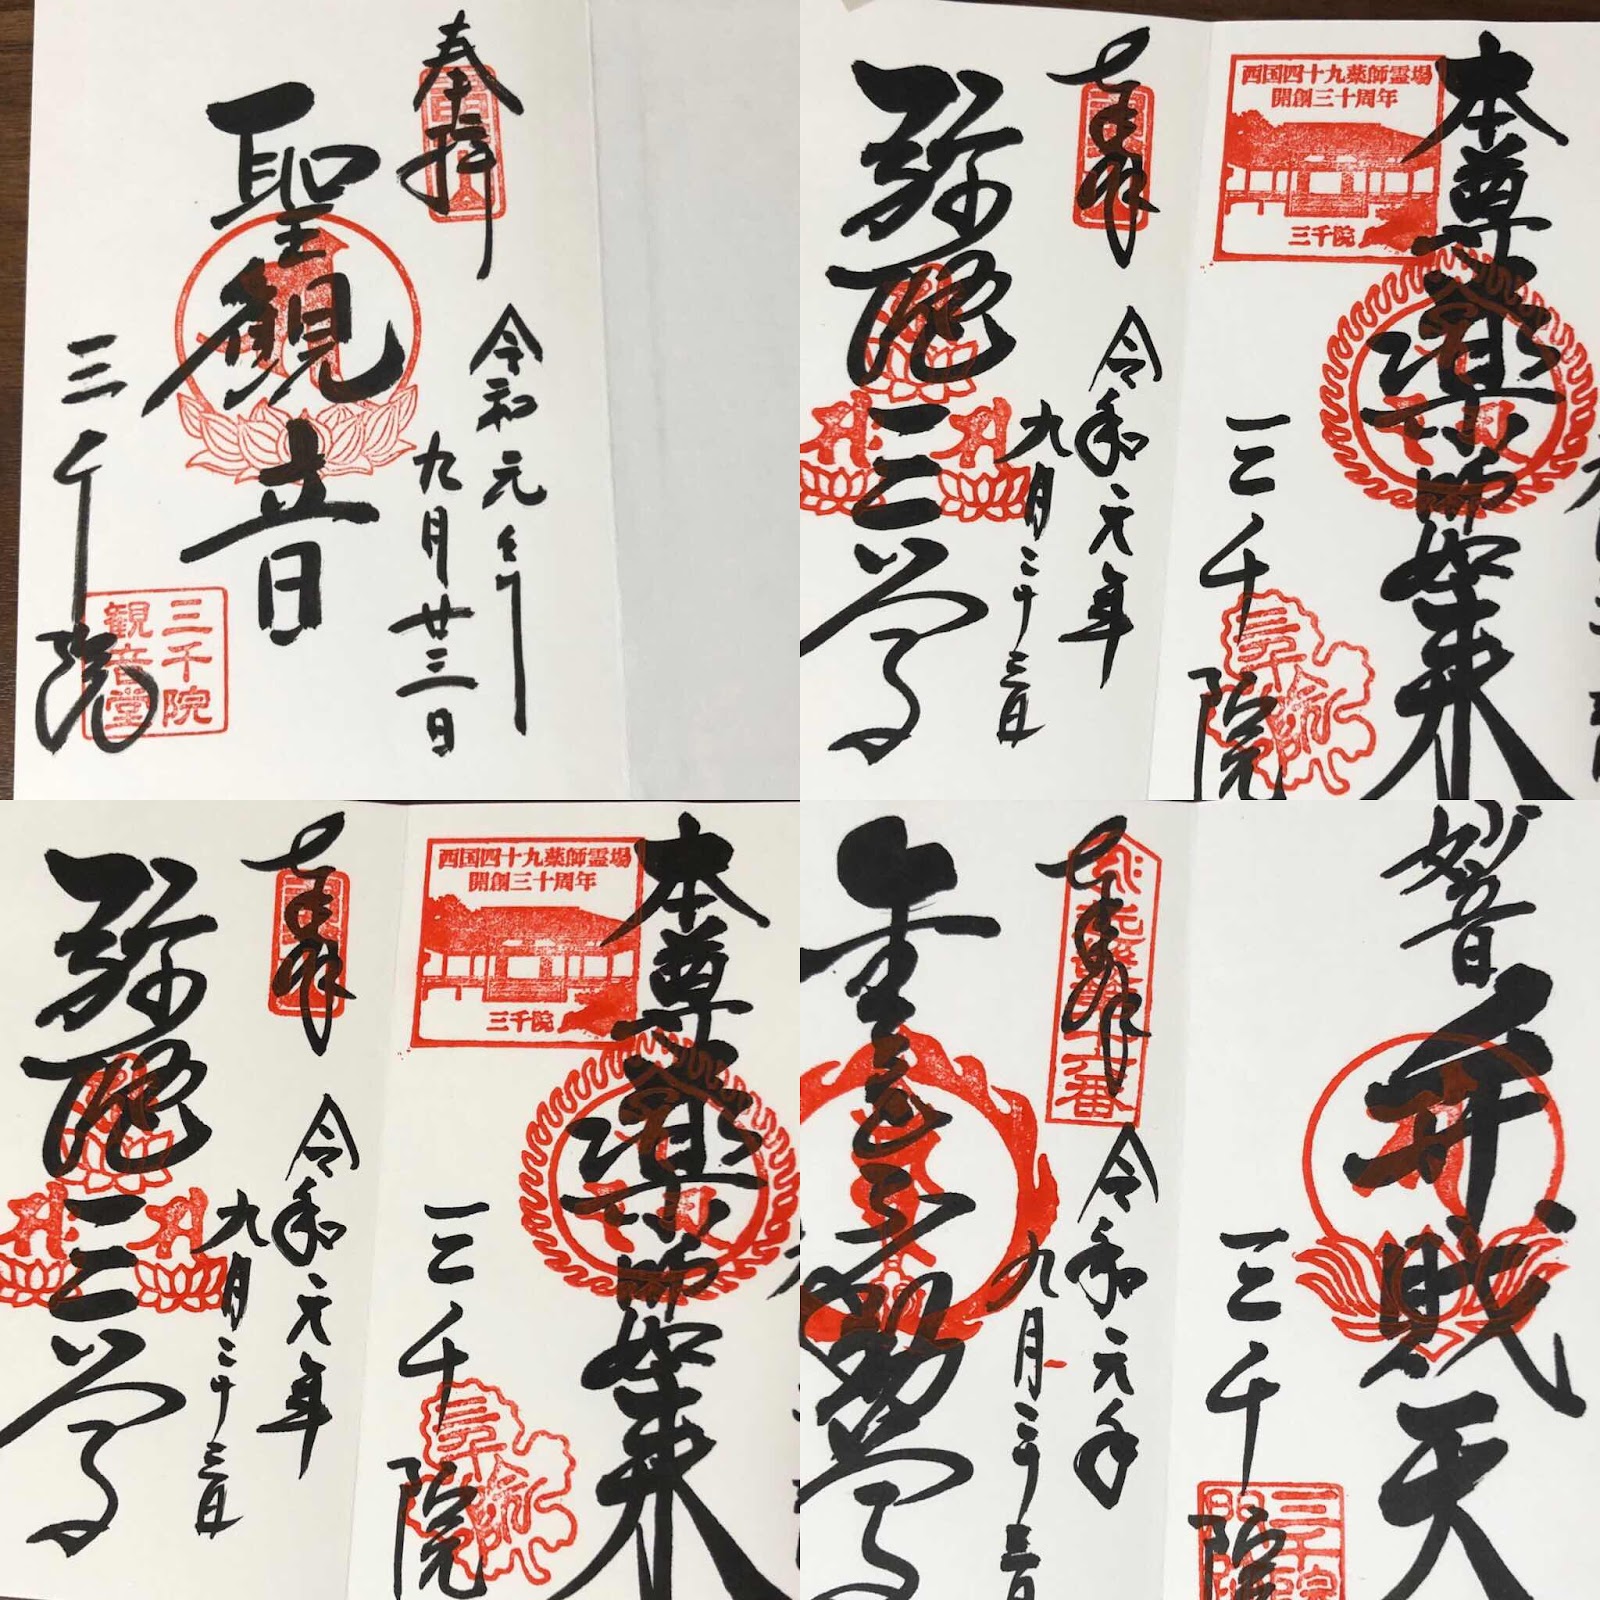 奉拝
令和元年
九月廿三日
聖観音
三千院
三千院
観音堂
本尊薬師如来
西国四十九薬師霊場
開創三十周年
三千院
三千院
奉拝
令和元年
九月二十三日
弥陀三尊
本尊薬師如来
西国四十九薬師霊場
開創三十周年
三千院
三千院
奉拝
令和元年
九月二十三日
弥陀三尊
妙音
弁財天
三千院
奉拝
令和元年
九月二十三日
金色不動尊